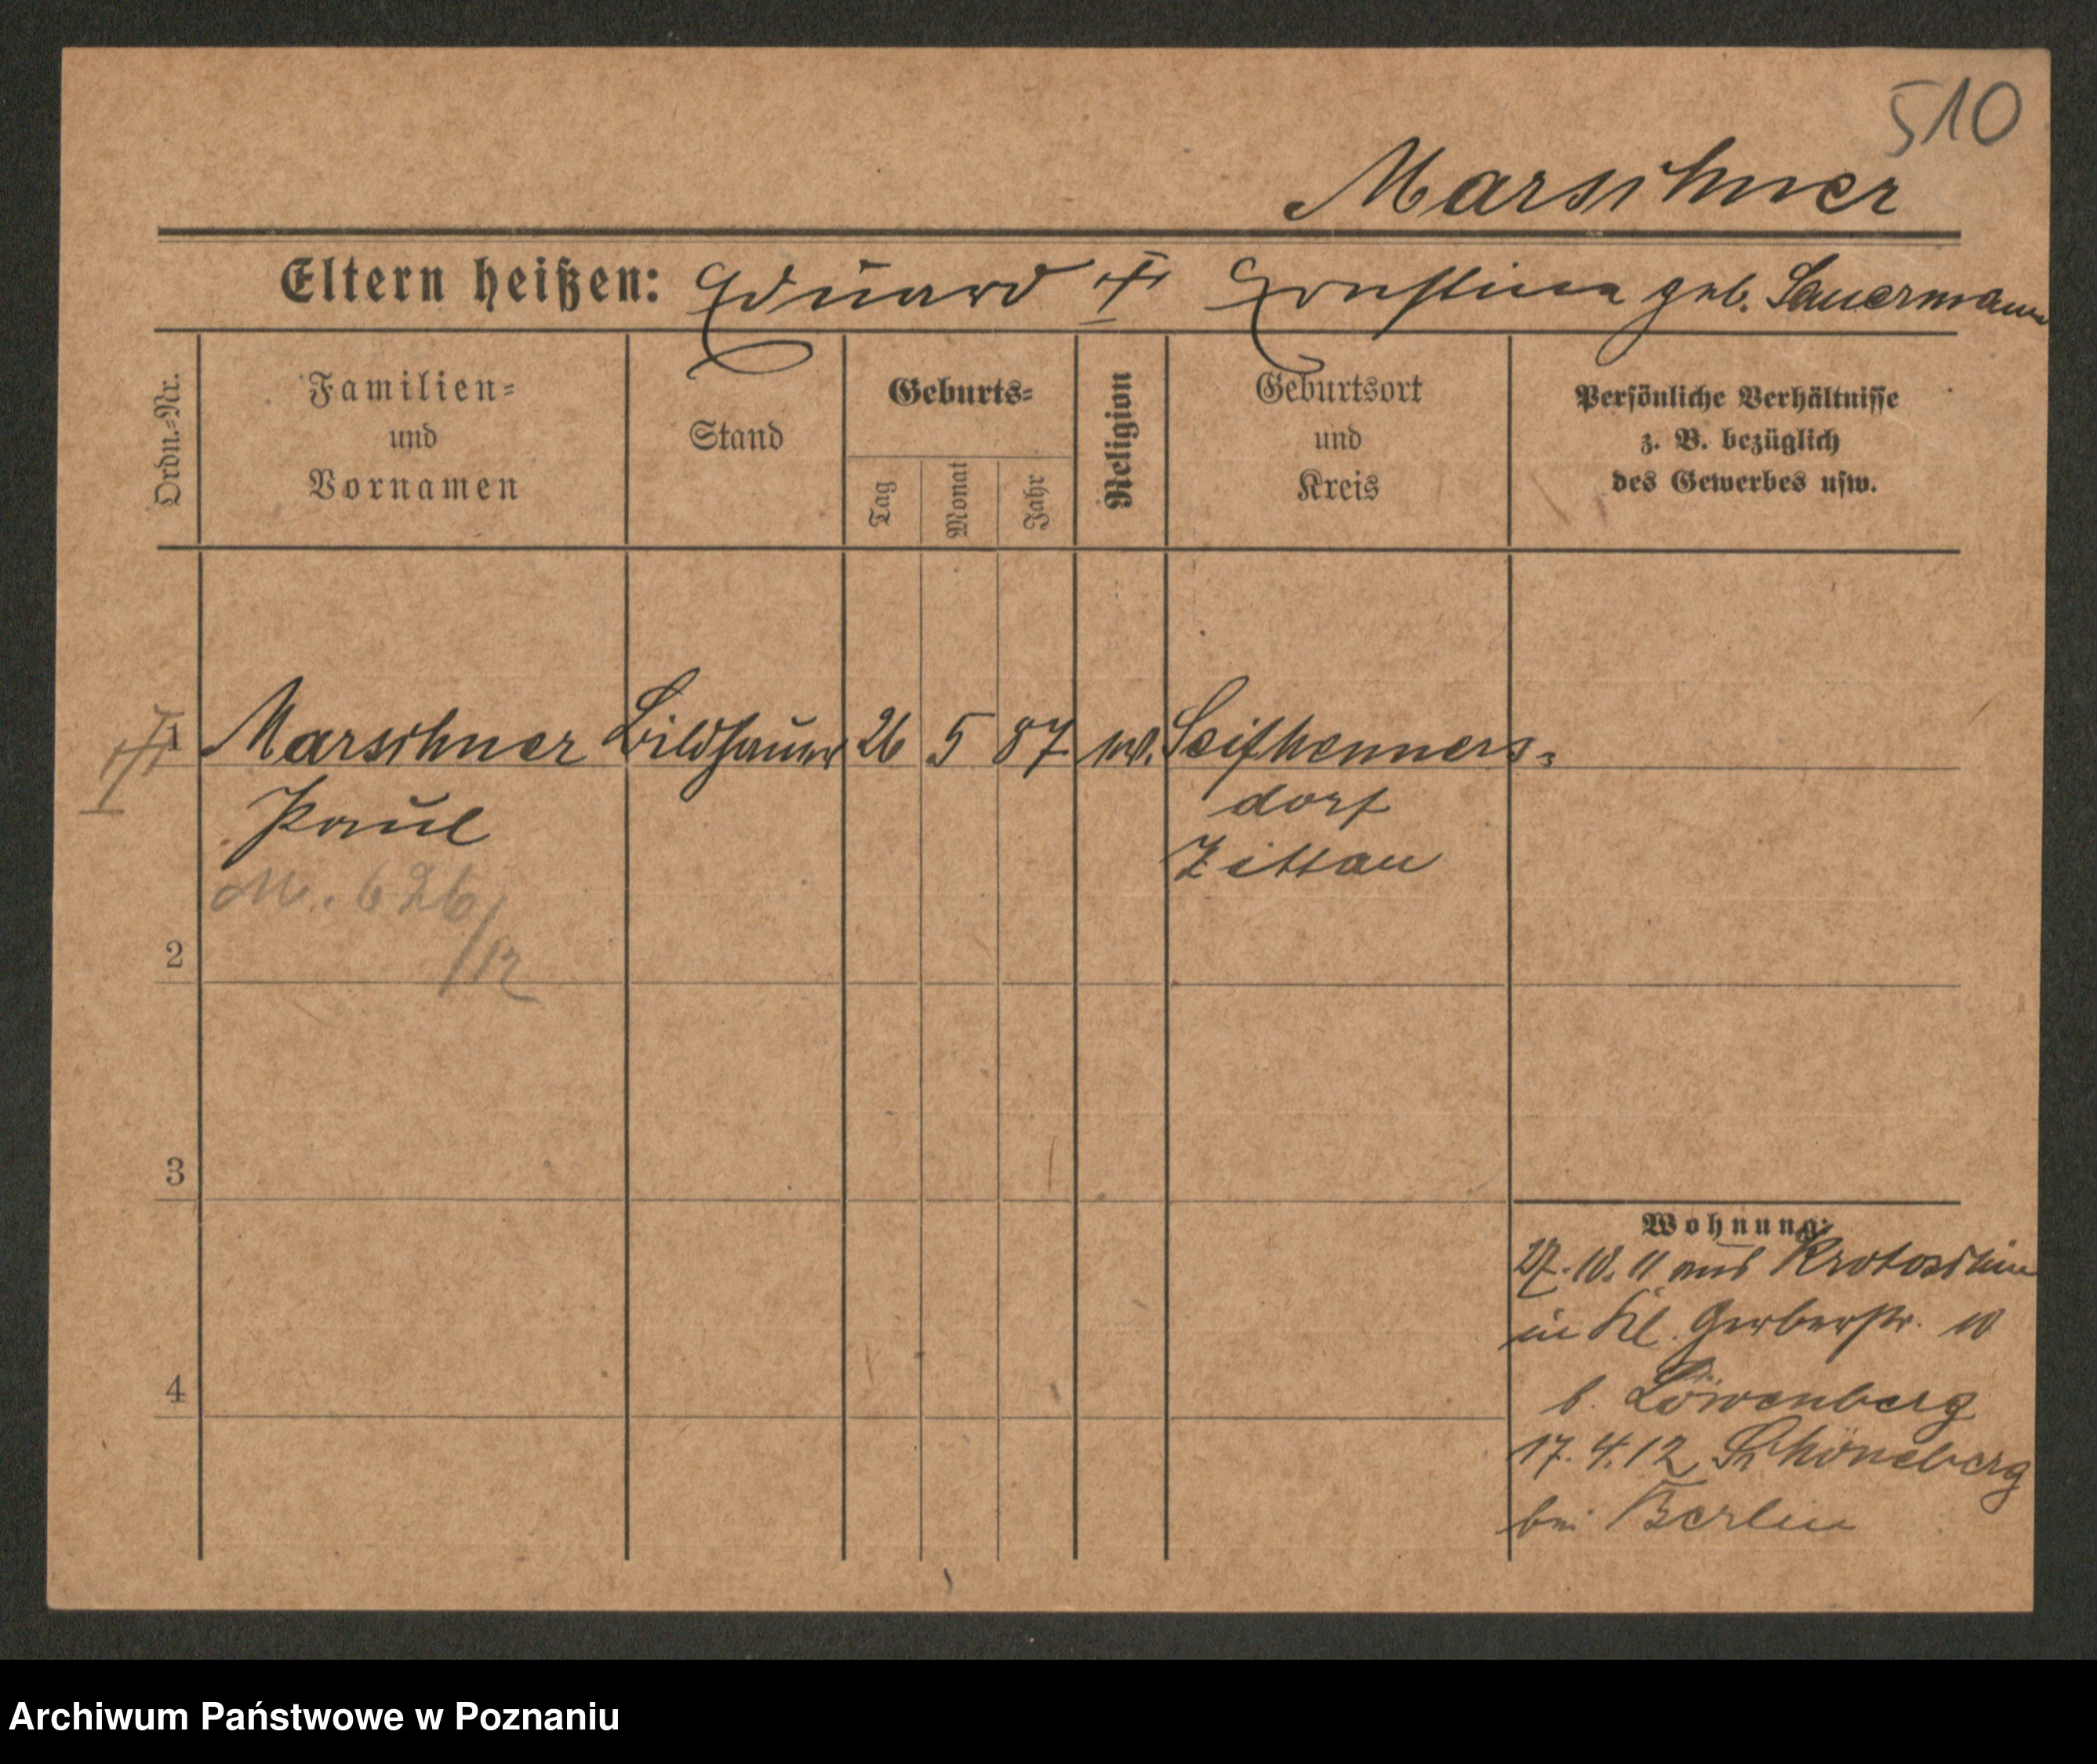 510
Marschner
Eltern heißen: Eduard † Ernstine geb. Sauermann
Ordn.-Nr.
Familien-
und
Vornamen
Stand
Geburts-
Tag
Monat
Jahr
Religion
Geburtsort
und
Kreis
Persönliche Verhältnisse
z. B. bezüglich
des Gewerbes usw.
1 Marschner Bildhauer 26 5 87 Seifhenners-
Paul dorf
Zittau
M. 626/12
2
3
4
Wohnung:
27. 10. 11 aus Krotoschin
in Kl. Gerberstr. 10
b. Löwenberg
17. 4. 12 Schöneberg
bei Berlin
Archiwum Państwowe w Poznaniu